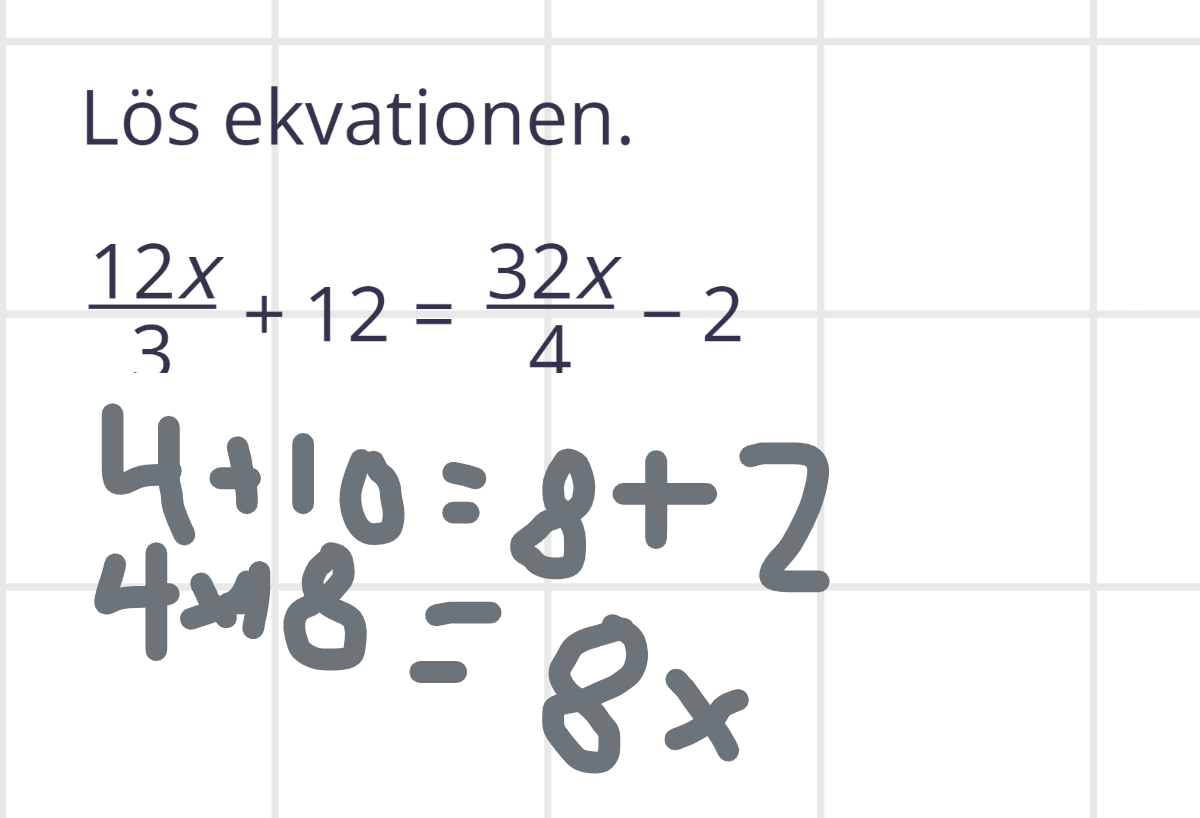 Lös ekvationen.
12x/3 + 12 = 32x/4 − 2
4+10=8+2
4x18=8x